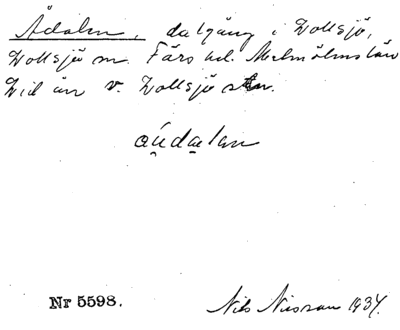 Ådalen, dalgång i Vollsjö,
Vollsjö sn. Färs hd. Malmöhus län
Vid ån v. Vollsjö stn.
áúdalan
Nr 5598.
Nils Nilsson 1934.